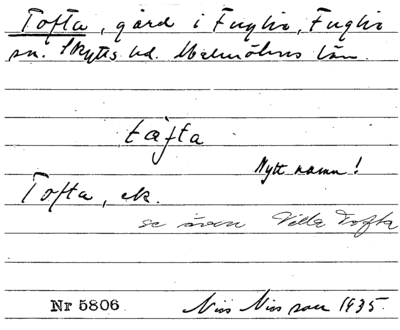 Tofta, gård i Fuglie, Fuglie
sn. Skytts hd. Malmöhus län.
tåfta
Nytt namn!
Tofta, ek.
se även Villa Tofta
Nr 5806 Nils Nilsson 1935.